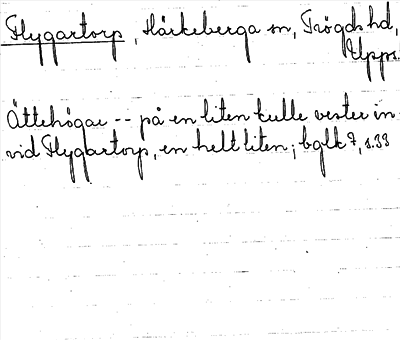 Flygartorp, Härkeberga sn, Trögds hd,
Upps.
Ättehögar -- på en liten kulle vester in-
vid Flygartorp, en helt liten; bglk 7, s. 33